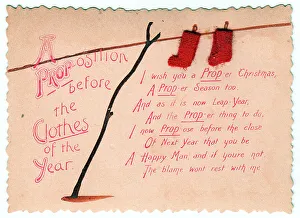 A
PROPosition
before
the
Clothes
of the
Year.
I wish you a Prop-er Christmas,
A Prop-er Season too.
And as it is now Leap Year,
And the Prop-er thing to do,
I now Prop-ose before the close
Of Next Year that you be
A Happy Man, and if you're not
The blame wont rest with me